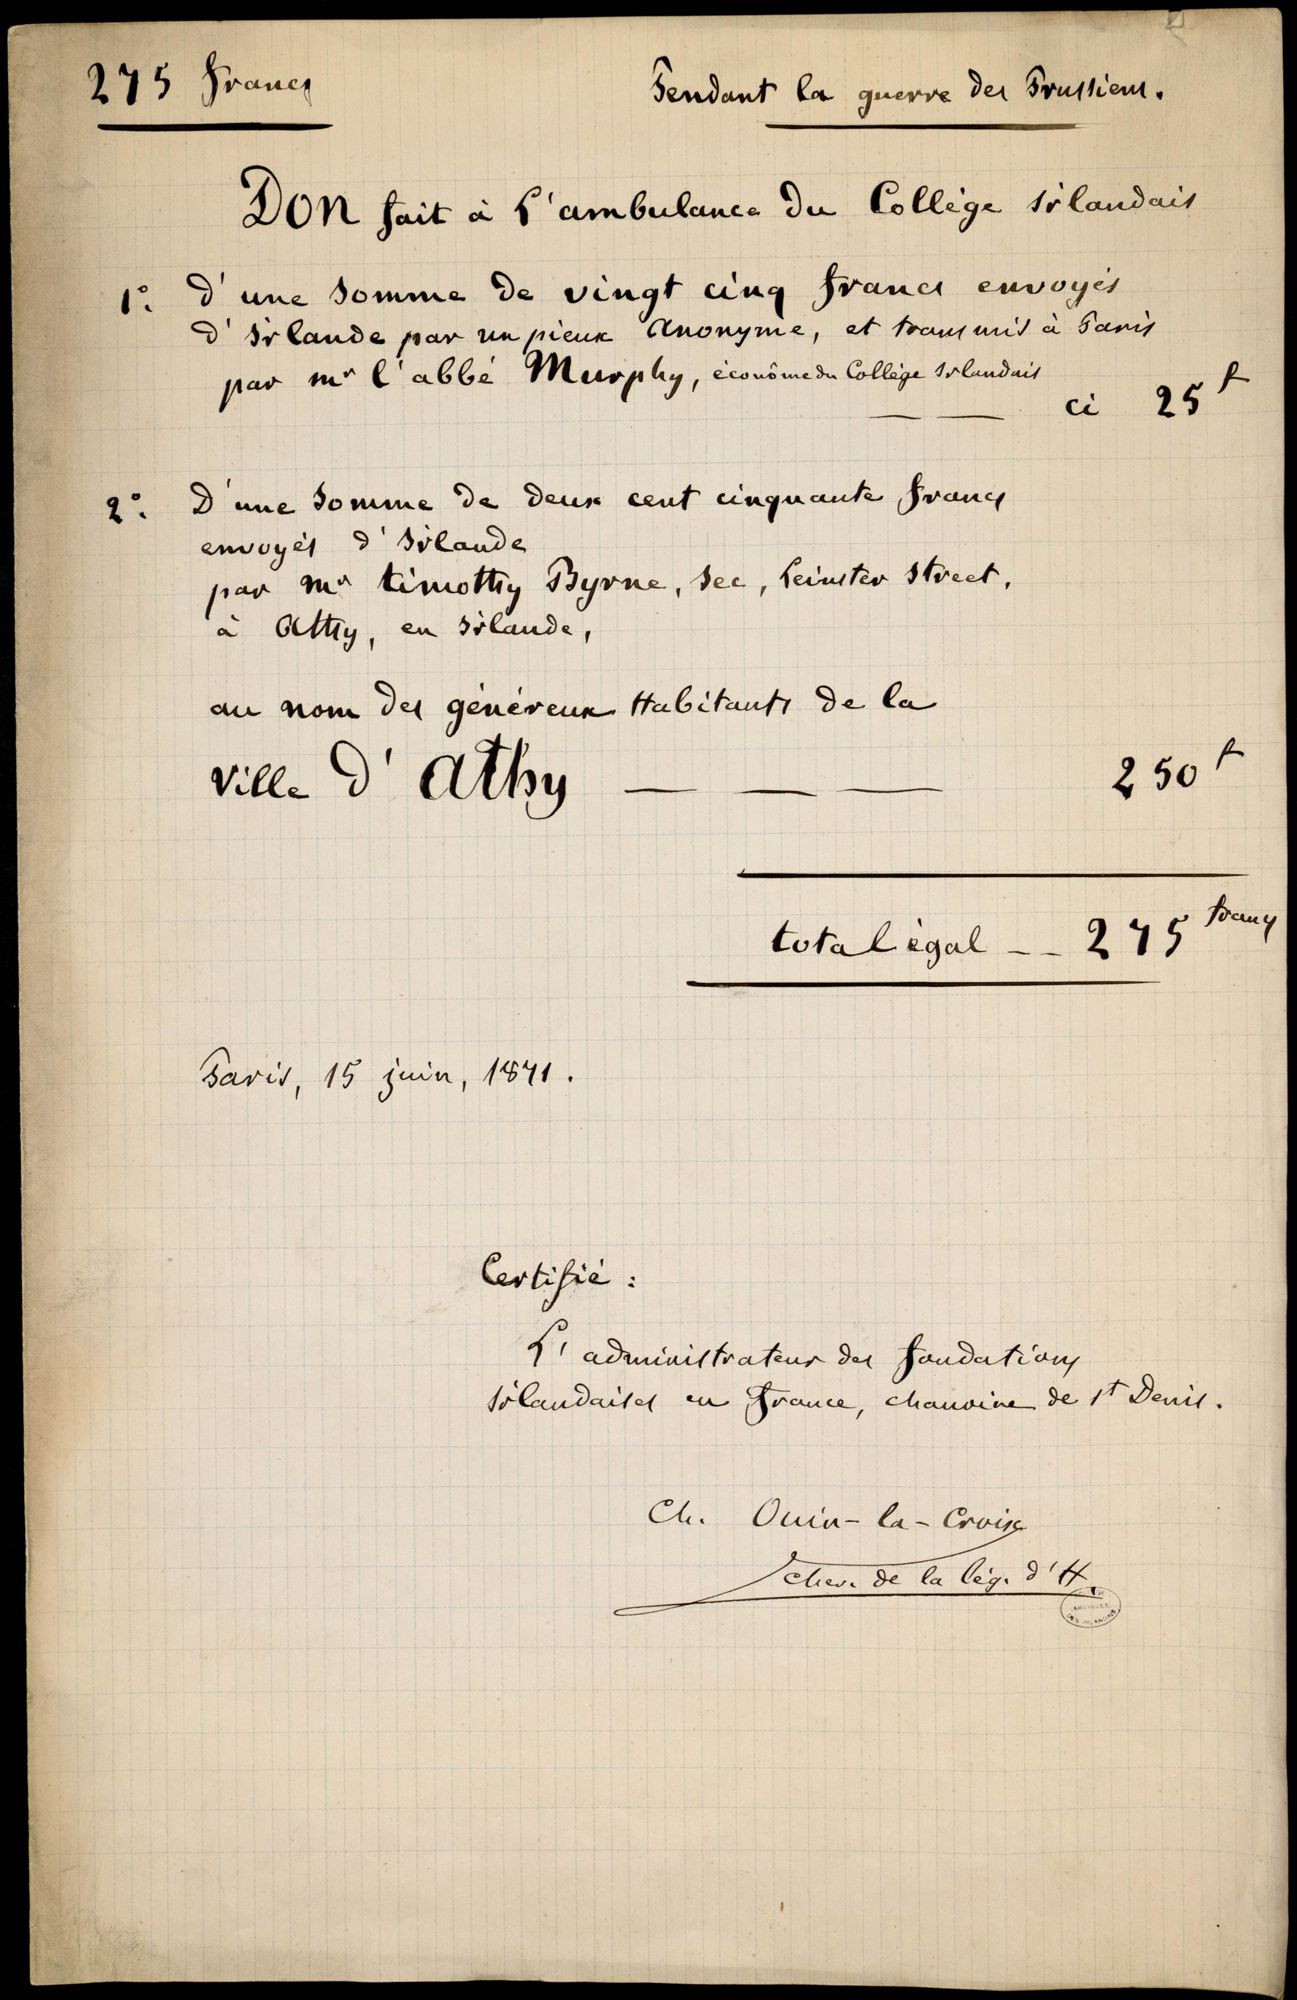 275 francs
Pendant la guerre des Prussiens.
Don fait à l'ambulance du Collège irlandais
1°. d'une somme de vingt cinq francs envoyés
d'irlande par un pieux anonyme, et transmis à Paris
par mr l'abbé Murphy, économe du Collège irlandais
ci 25 f
2°. D'une somme de deux cent cinquante francs
envoyés d'irlande
par mr timothy Byrne, sec, Leinster street,
à Athy, en irlande,
au nom des généreux Habitants de la
ville d'Athy — — — 250 f
total égal -- 275 francs
Paris, 15 juin, 1871.
Certifié :
L'administrateur des fondations
irlandaises en france, chanoine de st Denis.
Ch. Ouin-la-Croix
chev. de la lég. d'H.
ARCHIVES
DES IRLANDAIS